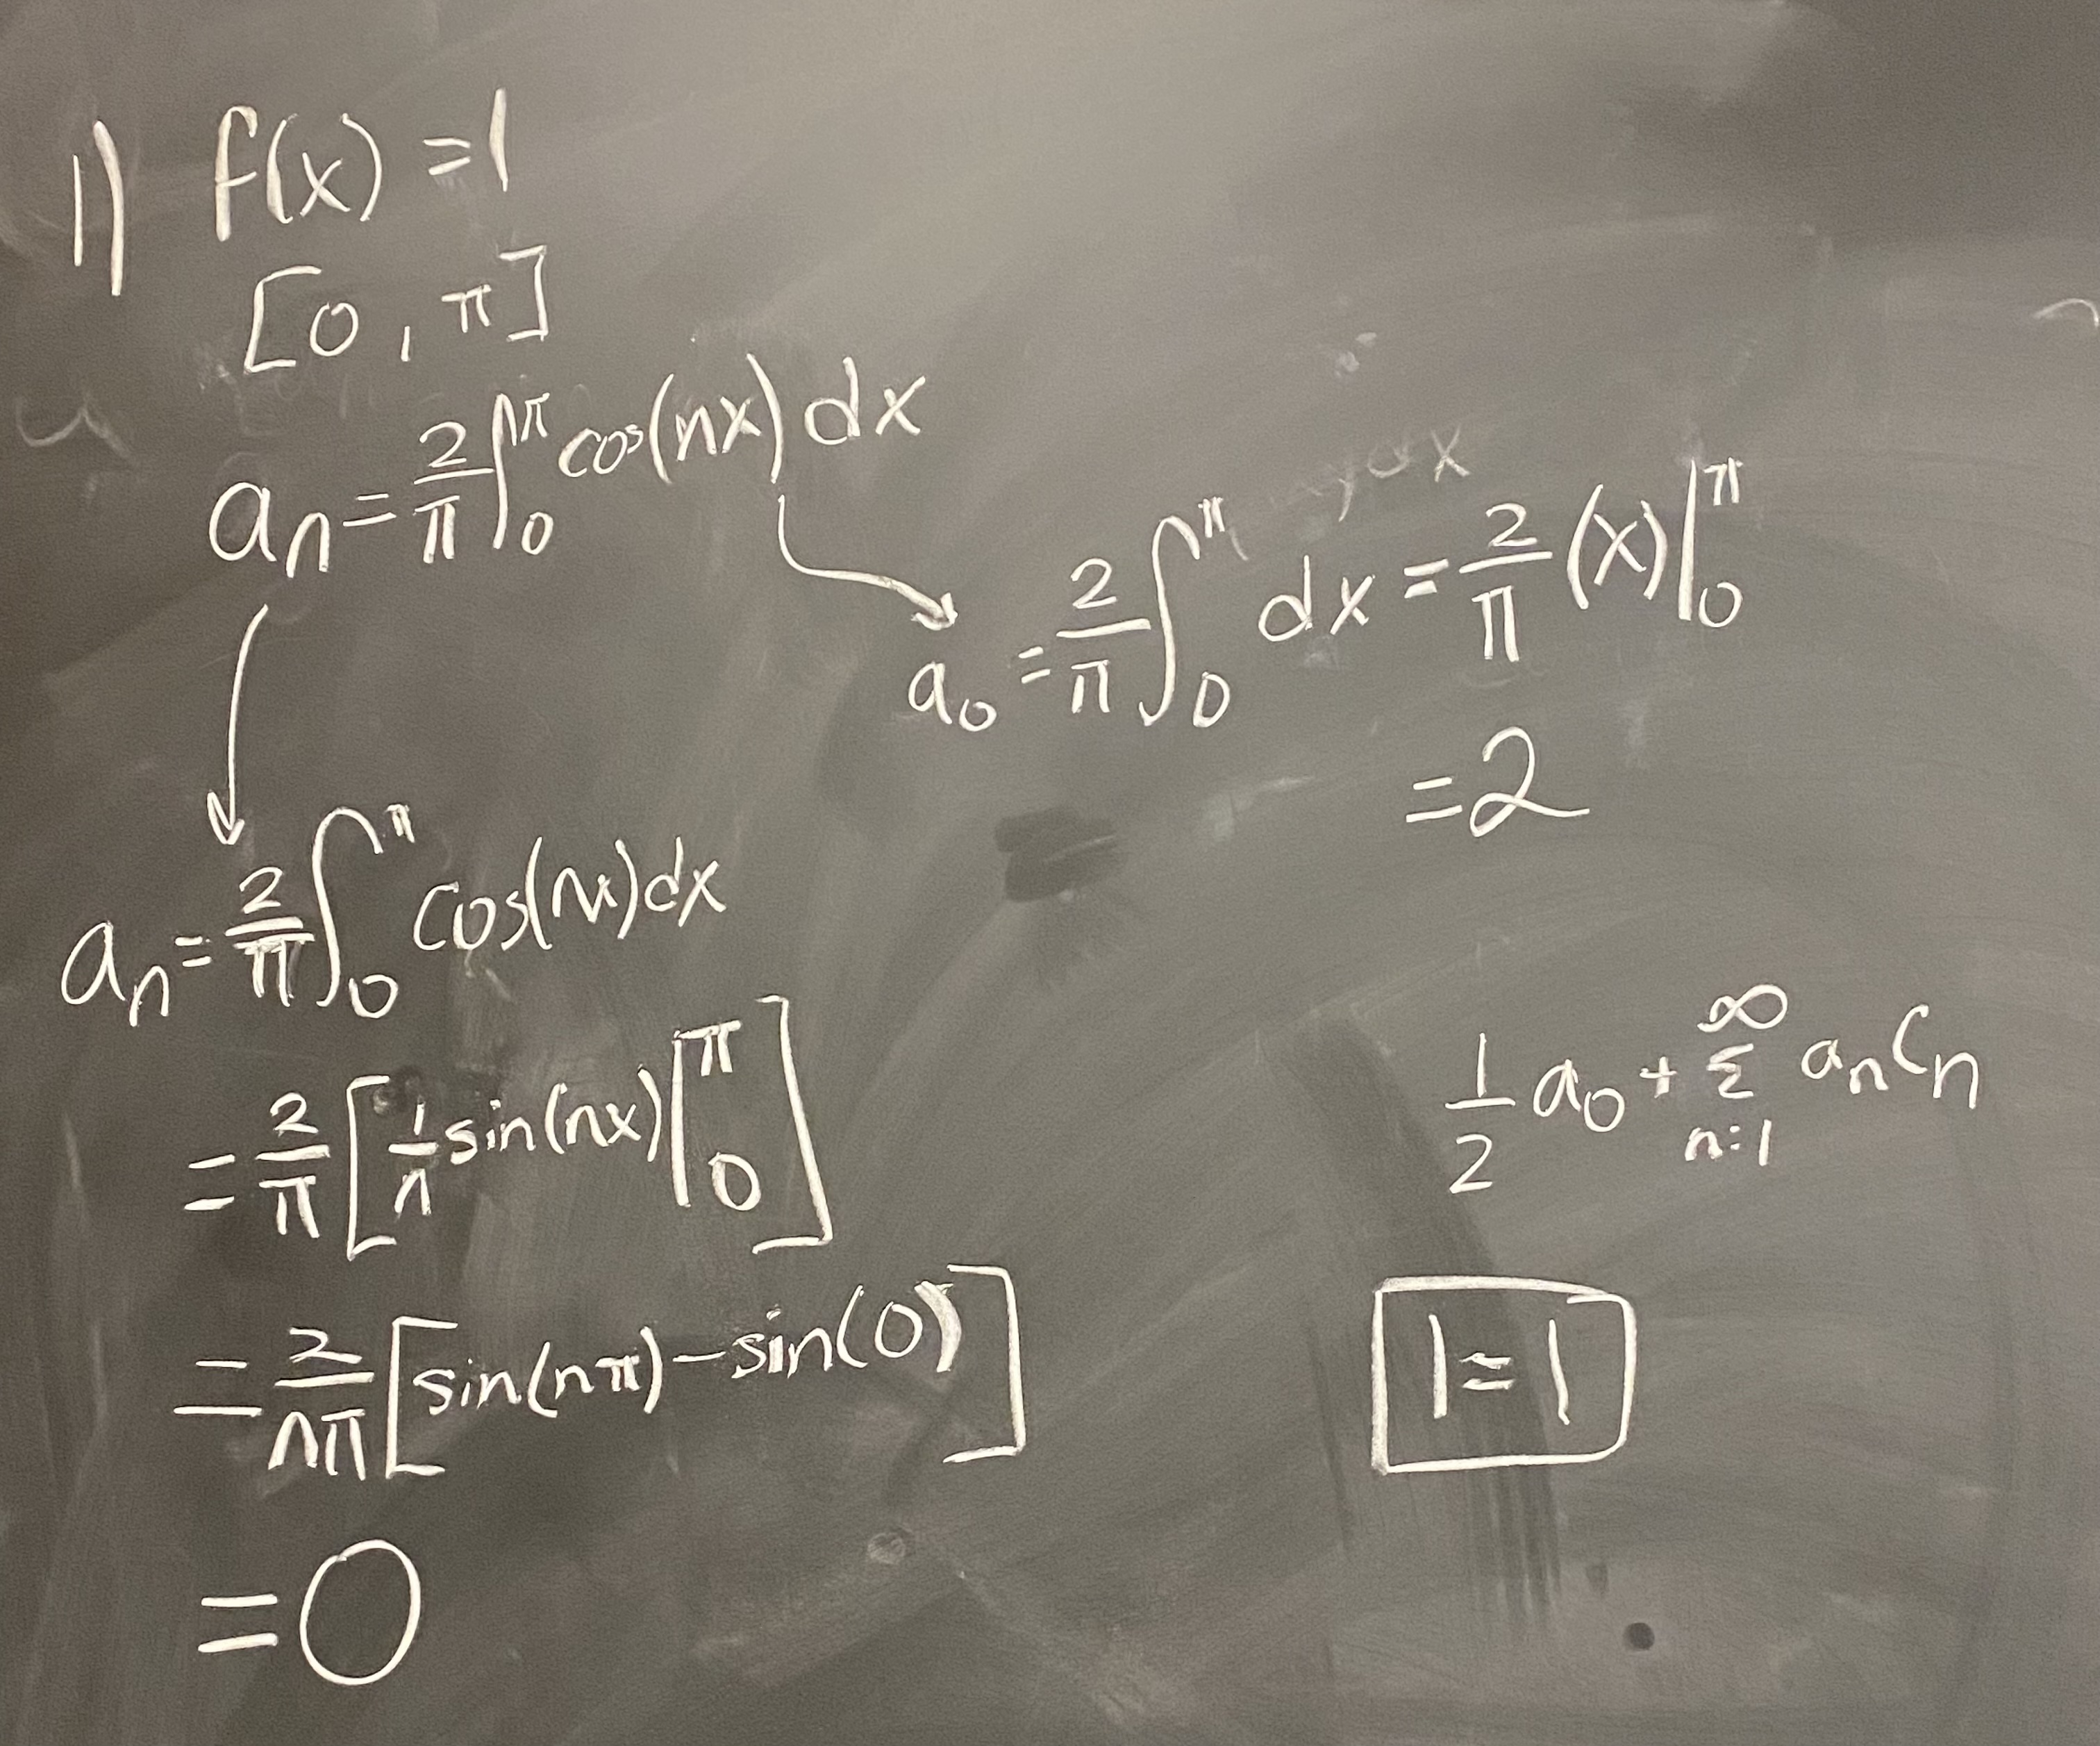 1) f(x) = 1
[0, π]
aₙ = 2/π ∫₀^π cos(nx) dx
a₀ = 2/π ∫₀^π dx = 2/π (x)|₀^π
= 2
aₙ = 2/π ∫₀^π cos(nx) dx
= 2/π [1/n sin(nx)|₀^π]
= 2/nπ [sin(nπ) - sin(0)]
= 0
1/2 a₀ + Σ_{n=1}^∞ aₙCₙ
1 = 1